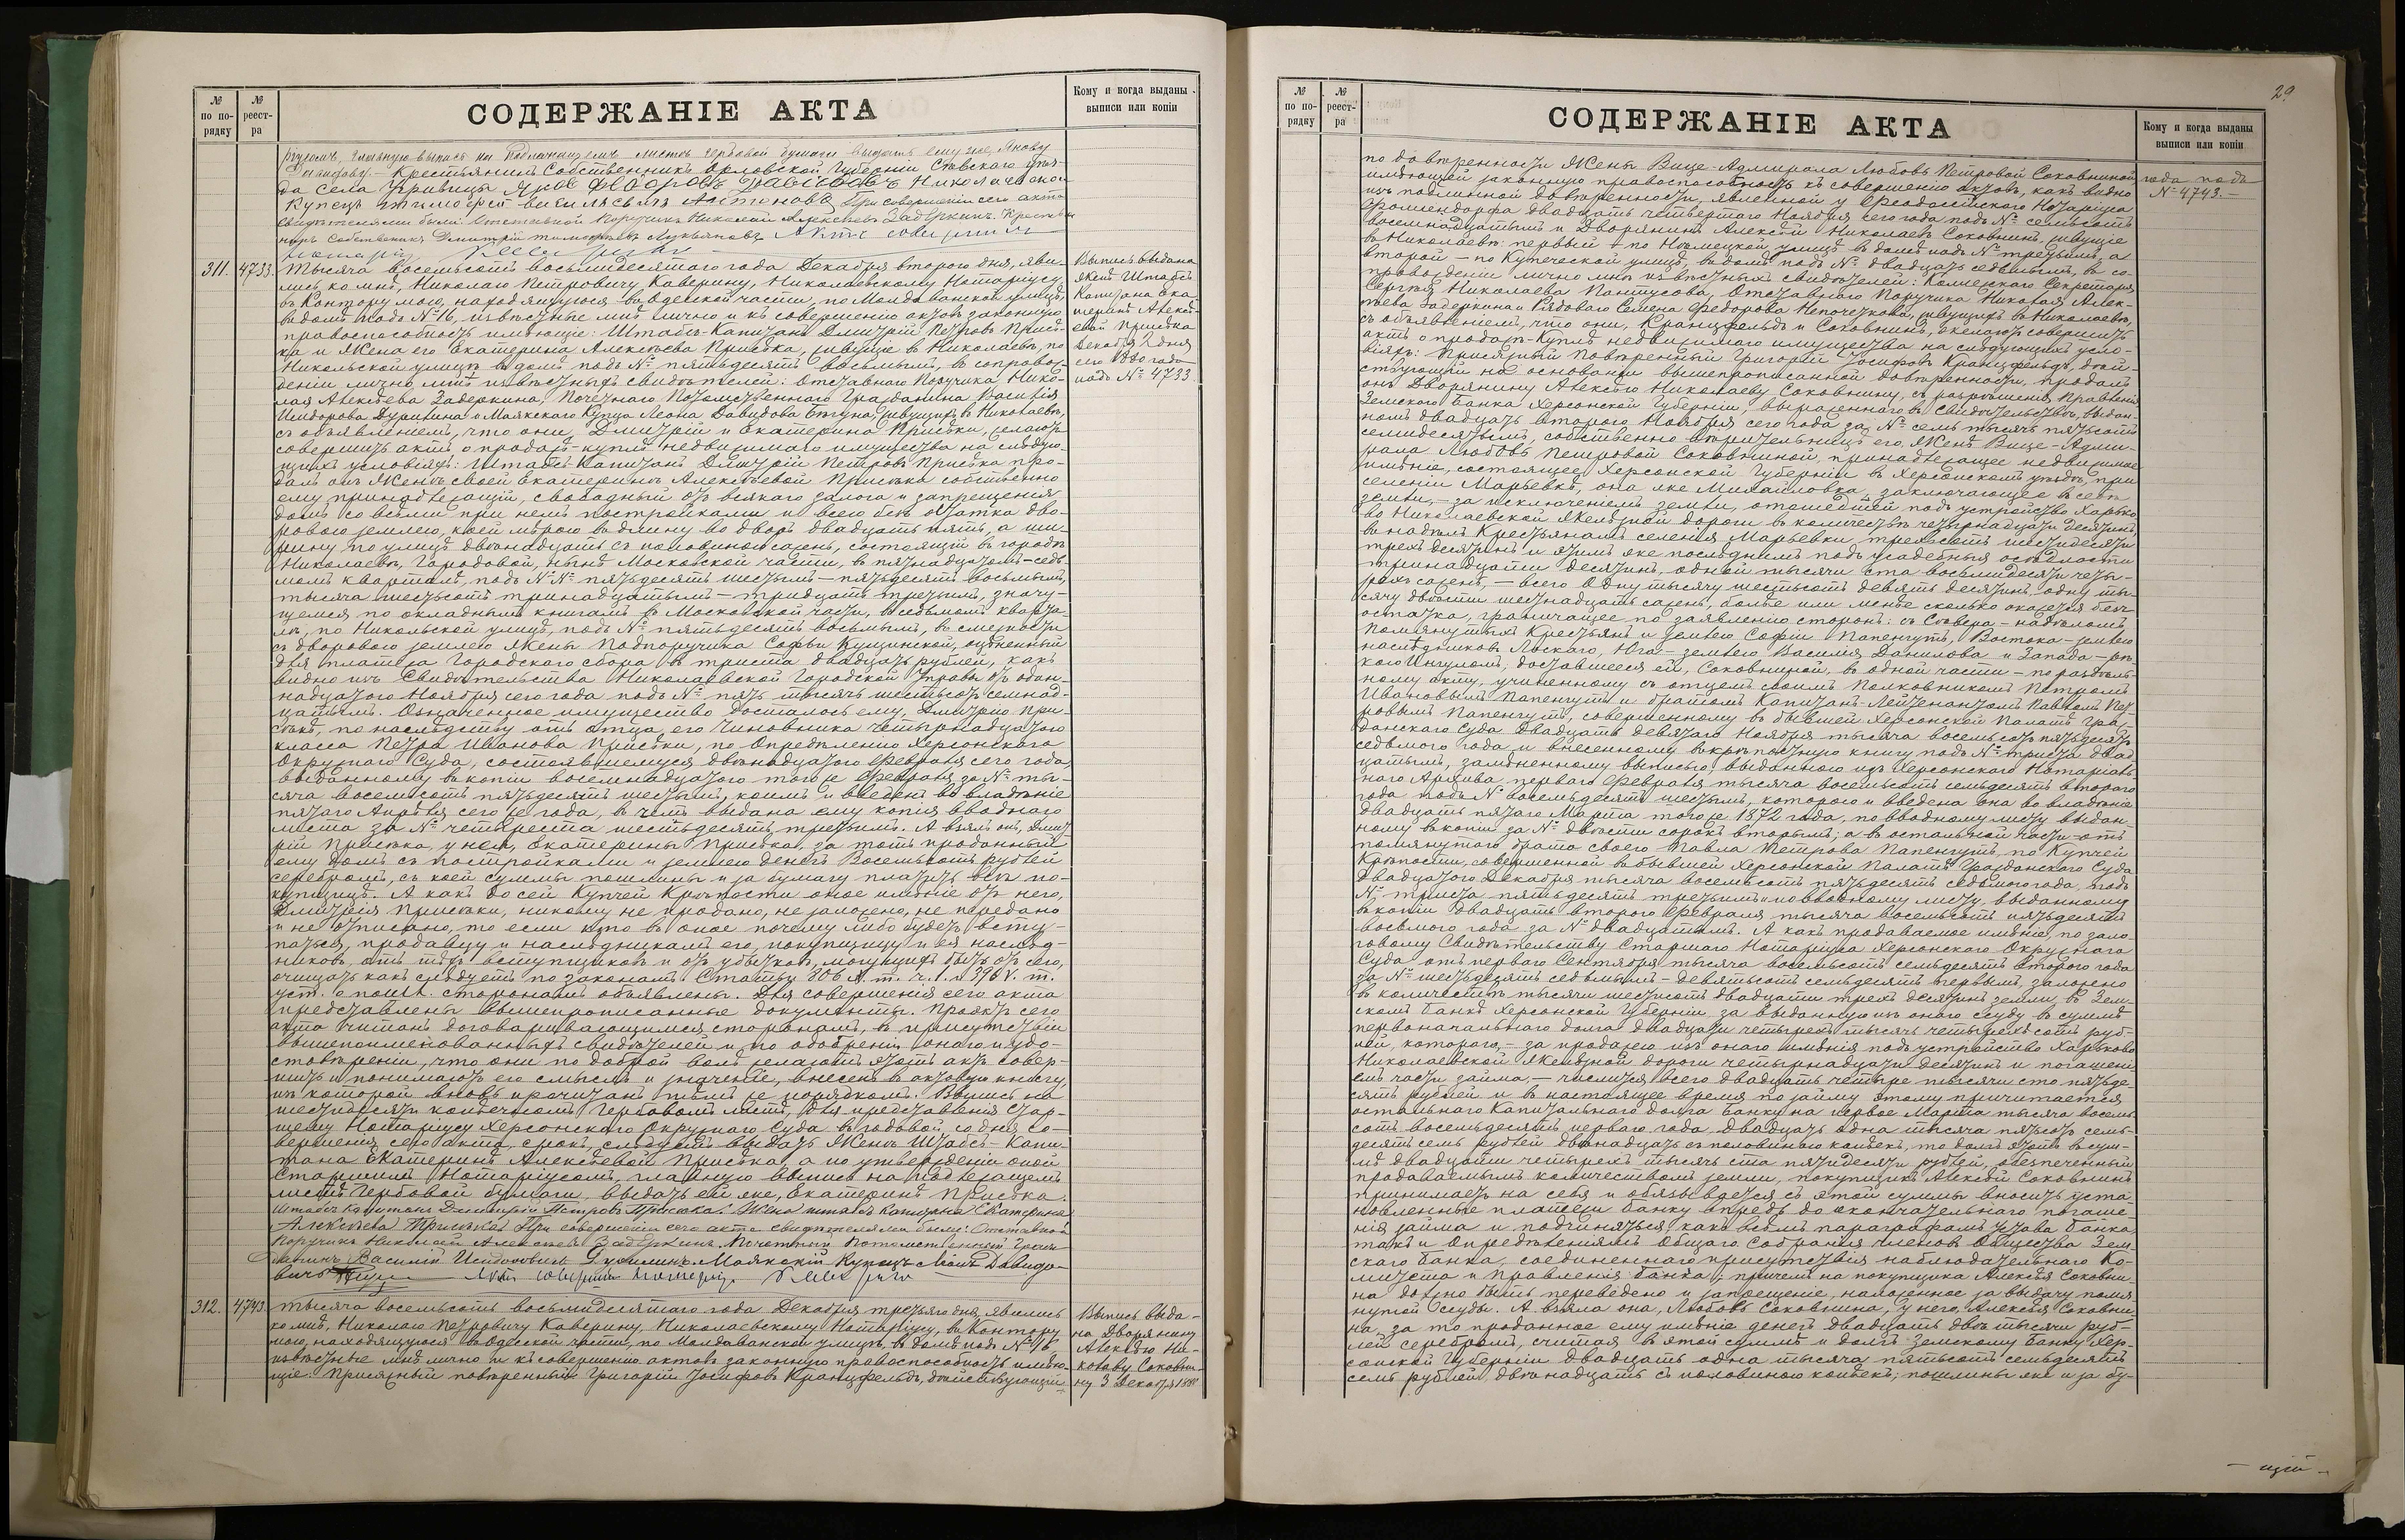 № по порядку
№ реестра
СОДЕРЖАНІЕ АКТА
Кому и когда выданы выписи или копіи
Крестьянинъ Собственникъ Орловской Губерніи
да села Купецъ Тимофей Антоновъ При совершеніи сего акта
свидѣтелями были: Отставной Поручикъ Николай Алексѣевъ Задеркинъ. Крестья
нинъ Собственникъ Дмитрій Тимофеевъ Лукьяновъ Актъ совершилъ
311.
4733.
Тысяча восемьсотъ восьмидесятаго года Декабря втораго дня, яви-
лись ко мнѣ, Николаю Петровичу Каверину, Николаевскому Нотаріусу
въ Контору мою, находящуюся въ Одесской части, по Молдаванской улицѣ,
въ домѣ подъ № 16, извѣстные мнѣ лично и къ совершенію актовъ законную
правоспособность имѣющіе: Штабсъ-Капитанъ Дмитрій Петровъ Присѣ-
ка и Жена его Екатерина Алексѣева Присѣка, живущіе въ Николаевѣ, по
Никольской улицѣ въ домѣ подъ № пятьдесятъ восьмымъ, въ сопровож-
деніи лично мнѣ извѣстныхъ свидѣтелей: Отставнаго Поручика Нико-
лая Алексѣева Задеркина, Почетнаго Потомственнаго Гражданина Василія
Исидорова Дурилина и Маякскаго Купца Леона Давидова живущихъ въ Николаевѣ,
съ объявленіемъ, что они, Дмитрій и Екатерина Присѣки, желаютъ
совершить актъ о продажѣ-куплѣ недвижимаго имущества на слѣдую-
щихъ условіяхъ: Штабсъ-Капитанъ Дмитрій Петровъ Присѣка про-
далъ онъ Женѣ своей Екатеринѣ Алексѣевой Присѣкѣ собственно
ему принадлежащій, свободный отъ всякаго залога и запрещенія
домъ со всѣми при немъ постройками и всего безъ остатка дво-
ровою землею, коей мѣрою въ длину во дворъ двадцать пять, а ши-
рину по улицѣ двѣнадцать съ половиною сажень, состоящій въ городѣ
Николаевѣ, Городовой, нынѣ Московской части, въ пятнадцатомъ-седь-
момъ кварталѣ, подъ №№ пятьдесятъ шестымъ - пятьдесятъ восьмымъ,
тысяча шестьсотъ тринадцатымъ - тридцать третьимъ, значу-
щемся по окладнымъ книгамъ въ Московской части, въ седьмомъ кварта-
лѣ, по Никольской улицѣ, подъ № пятьдесятъ восьмымъ, въ смежности
съ дворовою землею Жены Подпоручика Софьи оцѣненный
для платежа Городскаго сбора въ триста двадцать рублей, какъ
видно изъ Свидѣтельства Николаевской Городской Управы отъ один-
надцатаго Ноября сего года подъ № пять тысячъ шестьсотъ семнад-
цатымъ. Означенное имущество досталось ему, Дмитрію При-
сѣкѣ, по наслѣдству отъ отца его Чиновника Четырнадцатаго
класса Петра Иванова Присѣки, по Опредѣленію Херсонскаго
Окружнаго Суда, состоявшемуся двѣнадцатаго Февраля сего года,
выданному въ копіи восемнадцатаго того же Февраля за № ты-
сяча восемьсотъ пятьдесятъ шестымъ, коимъ и введенъ во владѣніе
пятаго Апрѣля сего же года, въ чемъ выдана ему копія вводнаго
листа за № четыреста шестьдесятъ третьимъ. А взялъ онъ, Дмит-
рій Присѣка, у нея, Екатерины Присѣка, за тотъ проданный
ему домъ съ постройками и землею денегъ Восемьсотъ рублей
серебромъ, съ коей суммы пошлины и за бумагу платить всѣ по-
купщицѣ. А какъ до сей Купчей Крѣпости оное имѣніе отъ него,
Дмитрія Присѣки, никому не продано, не заложено, не передано
и не отписано, то если кто въ оное почему либо будетъ всту-
паться, продавцу и наслѣдникамъ его, покупщицу и ея наслѣд-
никовъ отъ тѣхъ вступщиковъ и отъ убытковъ, могущихъ быть отъ сего,
очищать какъ слѣдуетъ по законамъ. Статьи 806 X. т. ч. 1. и 396 V. т.
уст. о пошл. сторонамъ объявлены. Для совершенія сего акта
представлены вышепрописанные документы. Проэктъ сего
акта читанъ договаривающимся сторонамъ, въ присутствіи
вышепоименованныхъ свидѣтелей и по одобреніи онаго и удо-
стовѣреніи, что они по доброй волѣ желаютъ этотъ актъ совер-
шить и понимаютъ его смыслъ и значеніе, внесенъ въ актовую книгу,
изъ которой вновь прочитанъ тѣмъ же порядкомъ. Выпись на
шестидесяти копѣечномъ Гербовомъ листѣ, для представленія Стар-
шему Нотаріусу Херсонскаго Окружнаго Суда въ годовой, со дня со-
вершенія сего акта, срокъ, слѣдуетъ выдать Женѣ Штабсъ-Капи-
тана Екатеринѣ Алексѣевой Присѣка, а по утвержденіи оной
Старшимъ Нотаріусомъ, главную выпись на надлежащемъ
листѣ Гербовой бумаги, выдать ей же, Екатеринѣ Присѣка.
Штабсъ Капитанъ Дмитрій Петровъ Присѣка. Жена Штабсъ Капитана Екатерина
Алексѣева Присѣка При совершеніи сего акта свидѣтелями были: Отставной
Поручикъ Николай Алексѣевъ Задеркинъ. Почетный Потомственный Граж-
данинъ Василій Исидоровъ Дурилинъ. Маякскій Купецъ Леонъ Давидо-
вичъ
Выпись выдана
Женѣ Штабсъ
Капитана Ека
теринѣ Алексѣ-
евой Присѣка
Декабря 2 дня
сего 1880 года
подъ № 4733.
312.
4743.
Тысяча восемьсотъ восьмидесятаго года Декабря третьяго дня, явились
ко мнѣ, Николаю Петровичу Каверину, Николаевскому Нотаріусу, въ Контору
мою, находящуюся въ Одесской части, по Молдаванской улицѣ, въ домѣ подъ № 16
извѣстные мнѣ лично и къ совершенію актовъ законную правоспособность имѣю-
щіе: Присяжный повѣренный Григорій Іосифовъ Кранцфельдъ, дѣйствующій
Выпись выда-
на Дворянину
Алексѣю Ни-
колаеву Соковни-
ну 3 Декабря 1880
29
№ по порядку
№ реестра
СОДЕРЖАНІЕ АКТА
Кому и когда выданы выписи или копіи
по довѣренности Жены Вице-Адмирала Любовь Петровой Соковниной
имѣющей законную правоспособность къ совершенію актовъ, какъ видно
изъ подлинной довѣренности, явленной у Ѳеодосійскаго Нотаріуса
двадцать четвертаго Ноября сего года подъ № семьсотъ
восемнадцатымъ и Дворянинъ Алексѣй Николаевъ Соковнинъ, живущіе
въ Николаевѣ: первый - по Нѣмецкой улицѣ въ домѣ подъ № третьимъ, а
второй - по Купеческой улицѣ, въ домѣ подъ № двадцать седьмымъ, въ со-
провожденіи лично мнѣ извѣстныхъ свидѣтелей: Коллежскаго Секретаря
Сергѣя Николаева Пантусова, Отставнаго Поручика Николая Алек-
сѣева Задеркина и Рядоваго Семена Федорова Непочетова, живущихъ въ Николаевѣ,
съ объявленіемъ, что они, Кранцфельдъ и Соковнинъ, желаютъ совершить
актъ о продажѣ-куплѣ недвижимаго имущества на слѣдующихъ усло-
віяхъ: Присяжный Повѣренный Григорій Іосифовъ Кранцфельдъ, дѣй-
ствующій на основаніи вышепрописанной довѣренности, продалъ
онъ Дворянину Алексѣю Николаеву Соковнину, съ разрѣшенія Правленія
Земскаго Банка Херсонской Губерніи, выраженнаго въ свидѣтельствѣ, выдан-
номъ двадцать втораго Ноября сего года за № семь тысячъ пятьсотъ
семидесятымъ, собственно вѣрительницѣ его, Женѣ Вице-Адми-
рала Любовь Петровой Соковниной принадлежащее недвижимое
имѣніе, состоящее Херсонской Губерніи въ Херсонскомъ уѣздѣ, при
селеніи Марьевкѣ, она же Михайловка, заключающее въ себѣ
земли, - за исключеніемъ земли, отошедшей подъ устройство Харьково
во Николаевской Желѣзной дороги въ количествѣ четырнадцати десятинъ,
въ надѣлъ Крестьянамъ селенія Марьевки, трехсотъ шестидесяти
трехъ десятинъ и этимъ же послѣднимъ подъ усадебныя осѣдлости
тринадцати десятинъ, одной тысячи ста восьмидесяти четы-
рехъ сажень, - всего Одну тысячу шестьсотъ девять десятинъ, одну ты-
сячу двѣсти шестнадцать сажень, болѣе или менѣе сколько окажется безъ
остатка, граничащее по заявленію сторонъ: съ Сѣвера - надѣломъ
Помянутыхъ Крестьянъ и землею Софіи Папенгутъ, Востока - землею
наслѣдниковъ Лоскаго, Юга - землею Василія Данилова и Запада - рѣ-
кою Ингуломъ, доставшееся ей, Соковниной, въ одной части - по раздѣль-
ному акту, учиненному съ отцемъ своимъ Полковникомъ Петромъ
Ивановымъ Папенгутъ и братомъ Капитанъ-Лейтенантомъ Павломъ Пет
ровымъ Папенгутъ, совершенному въ бывшей Херсонской Палатѣ Граж-
данскаго Суда Двадцать девятаго Ноября тысяча восемьсотъ пятьдесятъ
седьмого года и внесенному въ крѣпостную книгу подъ № триста двад-
цатымъ, замѣненному выписью, выданною изъ Херсонскаго Нотаріаль-
наго Архива перваго Февраля тысяча восемьсотъ семьдесятъ втораго
года подъ № восемьдесятъ шестымъ, которою и введена она во владѣніе
двадцать пятаго Марта того же 1872 года, по вводному листу выдан-
ному въ копіи за № двѣсти сорокъ вторымъ; а въ остальной части - отъ
помянутаго брата своего Павла Петрова Папенгутъ, по Купчей
Крѣпости, совершенной въ бывшей Херсонской Палатѣ Гражданскаго Суда
Двадцатаго Декабря тысяча восемьсотъ пятьдесятъ седьмого года, подъ
№ триста пятьдесятъ третьимъ и по вводному листу, выданному
въ копіи двадцать втораго Февраля тысяча восемьсотъ пятьдесятъ
восьмого года за № двадцатымъ. А какъ продаваемое имѣніе, по зало-
говому Свидѣтельству Старшаго Нотаріуса Херсонскаго Окружнаго
Суда отъ перваго Сентября тысяча восемьсотъ семьдесятъ втораго года
за № шестьдесятъ седьмымъ - девятьсотъ семьдесятъ первымъ, заложено
въ количествѣ тысячи шестисотъ двадцати трехъ десятинъ земли, въ Зем-
скомъ Банкѣ Херсонской Губерніи за выданную изъ онаго ссуду въ суммѣ
первоначальнаго долга двадцати четырехъ тысячъ четырехсотъ руб-
лей, котораго, - за продажею изъ онаго имѣнія подъ устройство Харьково
Николаевской Желѣзной дороги четырнадцати десятинъ и погашені-
емъ части займа, - числится всего двадцать четыре тысячи сто пятьде-
сятъ рублей и въ настоящее время по займу этому причитается
остальнаго Капитальнаго долга Банку на первое Марта тысяча восемь
сотъ восемьдесятъ перваго года двадцать одна тысяча пятьсотъ семь-
десятъ семь рублей двѣнадцать съ половиною копѣекъ, то долгъ этотъ въ сум-
мѣ двадцати четырехъ тысячъ ста пятидесяти рублей, обезпеченный
продаваемымъ количествомъ земли, покупщикъ Алексѣй Соковнинъ
принимаетъ на себя и обязывается съ этой суммы вносить уста
новленные платежи Банку впредь до окончательнаго погаше
нія займа и подчиняться какъ всѣмъ параграфамъ Устава Банка
такъ и Опредѣленіямъ Общаго Собранія членовъ Общества Зем
скаго Банка, соединеннаго присутствія наблюдательнаго Ко-
митета и Правленія Банка; причемъ на покупщика Алексѣя Соковни
на должно быть переведено и запрещеніе, наложенное за выдачу помя
нутой ссуды. А взяла она, Любовь Соковнина, у него, Алексѣя Соковни
на, за то проданное ему имѣніе денегъ двадцать двѣ тысячи руб-
лей серебромъ, считая въ этой суммѣ и долгъ Земскому Банку Хер-
сонской Губерніи двадцать одна тысяча пятьсотъ семьдесятъ
семь рублей, двѣнадцать съ половиною копѣекъ; пошлины же и за бу-
года подъ
№ 4743. -